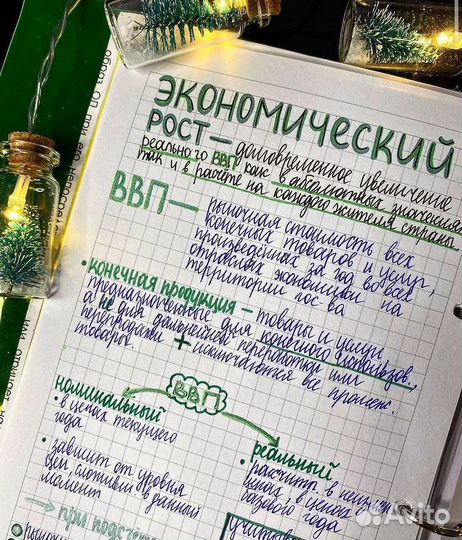 ЭКОНОМИЧЕСКИЙ
РОСТ — долговременное увеличение
реального ВВП как в абсолютных значениях,
так и в расчёте на каждого жителя страны
ВВП — рыночная стоимость всех
конечных товаров и услуг,
произведённых за год во всех
отраслях экономики на
территории гос-ва
• конечная продукция — товары и услуги
предназначенные для конечного использов.,
а не для дальнейшей переработки или
перепродажи + исключаются все промеж.
товары.
ВВП
номинальный
• в ценах текущего
года
• зависит от уровня
цен, сложившихся в данный
момент
реальный
• рассчит. в неизм.
ценах, в ценах
базового года
при подсчёте
учитыв
Avito